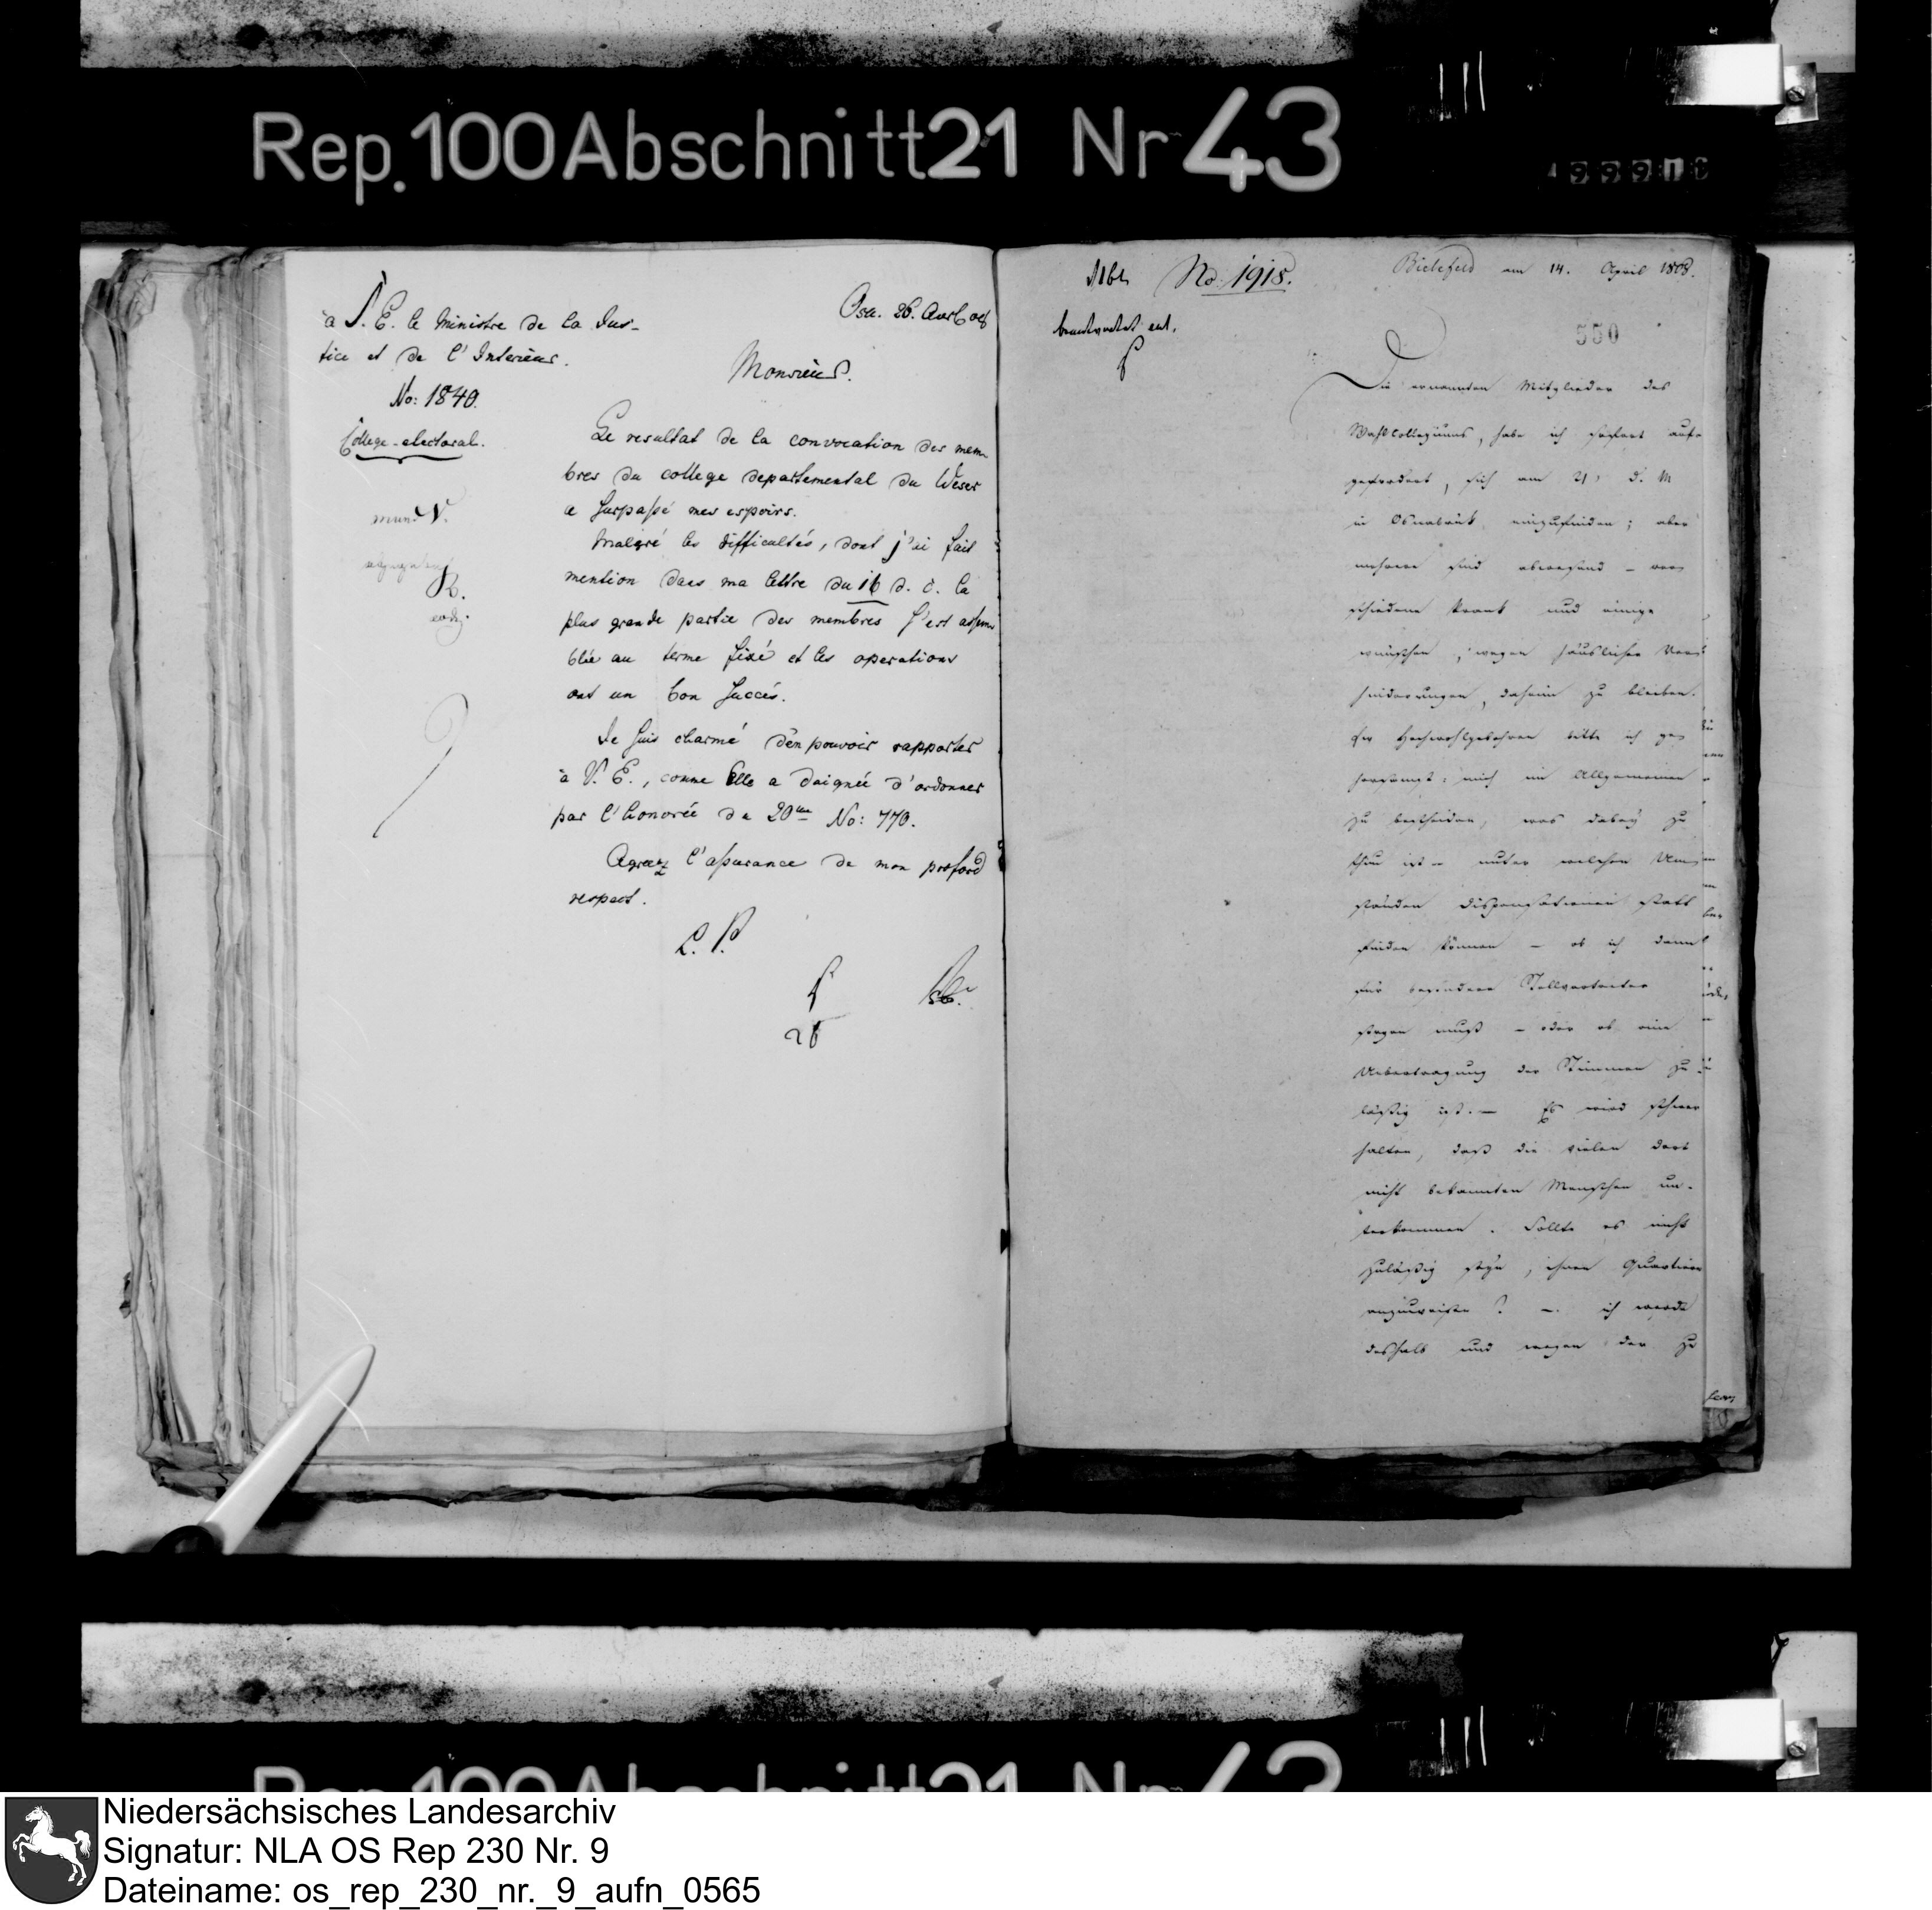 Rep. 100 Abschnitt 21 Nr 43
à S. E. le Ministre de la Jus-
tice et de l'Interieur.
No: 1840.
College-electoral.
Osn. 26. Avril 08
Monsieur.
Le resultat de la convocation des mem-
bres du college departemental du Weser
a surpassé mes espoirs.
Malgré les difficultés, dont j'ai fait
mention dans ma lettre du 16 d. c. la
plus grande partie des membres s'est assem
blée au terme fixé et les operations
ont un bon succès.
Je suis charmé d'en pouvoir rapporter
à V. E., comme Elle a daignée d'ordonner
par l'honorée de 20me No: 770.
Agreez l'assurance de mon profond
respect.
L. P.
26
No: 1918.
beantwortet eod.
Bielefeld am 14. April 1808.
550
Die ernannten Mitglieder des
Wahlcollegiums, habe ich sofort auf-
gefordert, sich am 21. d. M
in Osnabrük einzufinden; aber
mehrere sind abwesend - ver-
schiedene krank und einige
wünschen, wegen häuslicher Ver-
hinderungen, daheim zu bleiben.
Ew Hochwohlgebohren bitte ich ge-
horsamst: mich im Allgemeinen
zu bescheiden, was dabey zu
thun ist - unter welchen Um-
ständen Dispensationen statt
finden können - ob ich dann
für besondere Stellvertreter
sorgen muß - oder ob eine
Uebertragung der Stimmen zu-
läßig ist. - Es wird schwer
halten, daß die vielen dort
nicht bekannten Menschen un-
terkommen. Sollte es nicht
zuläßig seyn, ihnen Quartiere
anzuweisen? -. ich werde
deshalb und wegen der zu
Rep. 100 Abschnitt 21 Nr 43
Niedersächsisches Landesarchiv
Signatur: NLA OS Rep 230 Nr. 9
Dateiname: os_rep_230_nr._9_aufn_0565